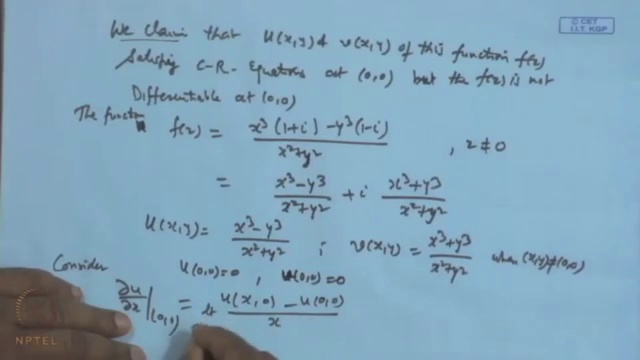 © CET
I.I.T. KGP
We claim that u(x,y) & v(x,y) of this function f(z)
Satisfing C-R- Equations at (0,0) but the f(z) is not
Differentiable at (0,0)
The function f(z) = x³(1+i) - y³(1-i) / x²+y² , z ≠ 0
= x³-y³ / x²+y² + i x³+y³ / x²+y²
u(x,y) = x³-y³ / x²+y² ; v(x,y) = x³+y³ / x²+y² when (x,y)≠(0,0)
Consider u(0,0)=0 , v(0,0)=0
∂u/∂x |(0,0) = lt u(x,0) - u(0,0) / x
NPTEL